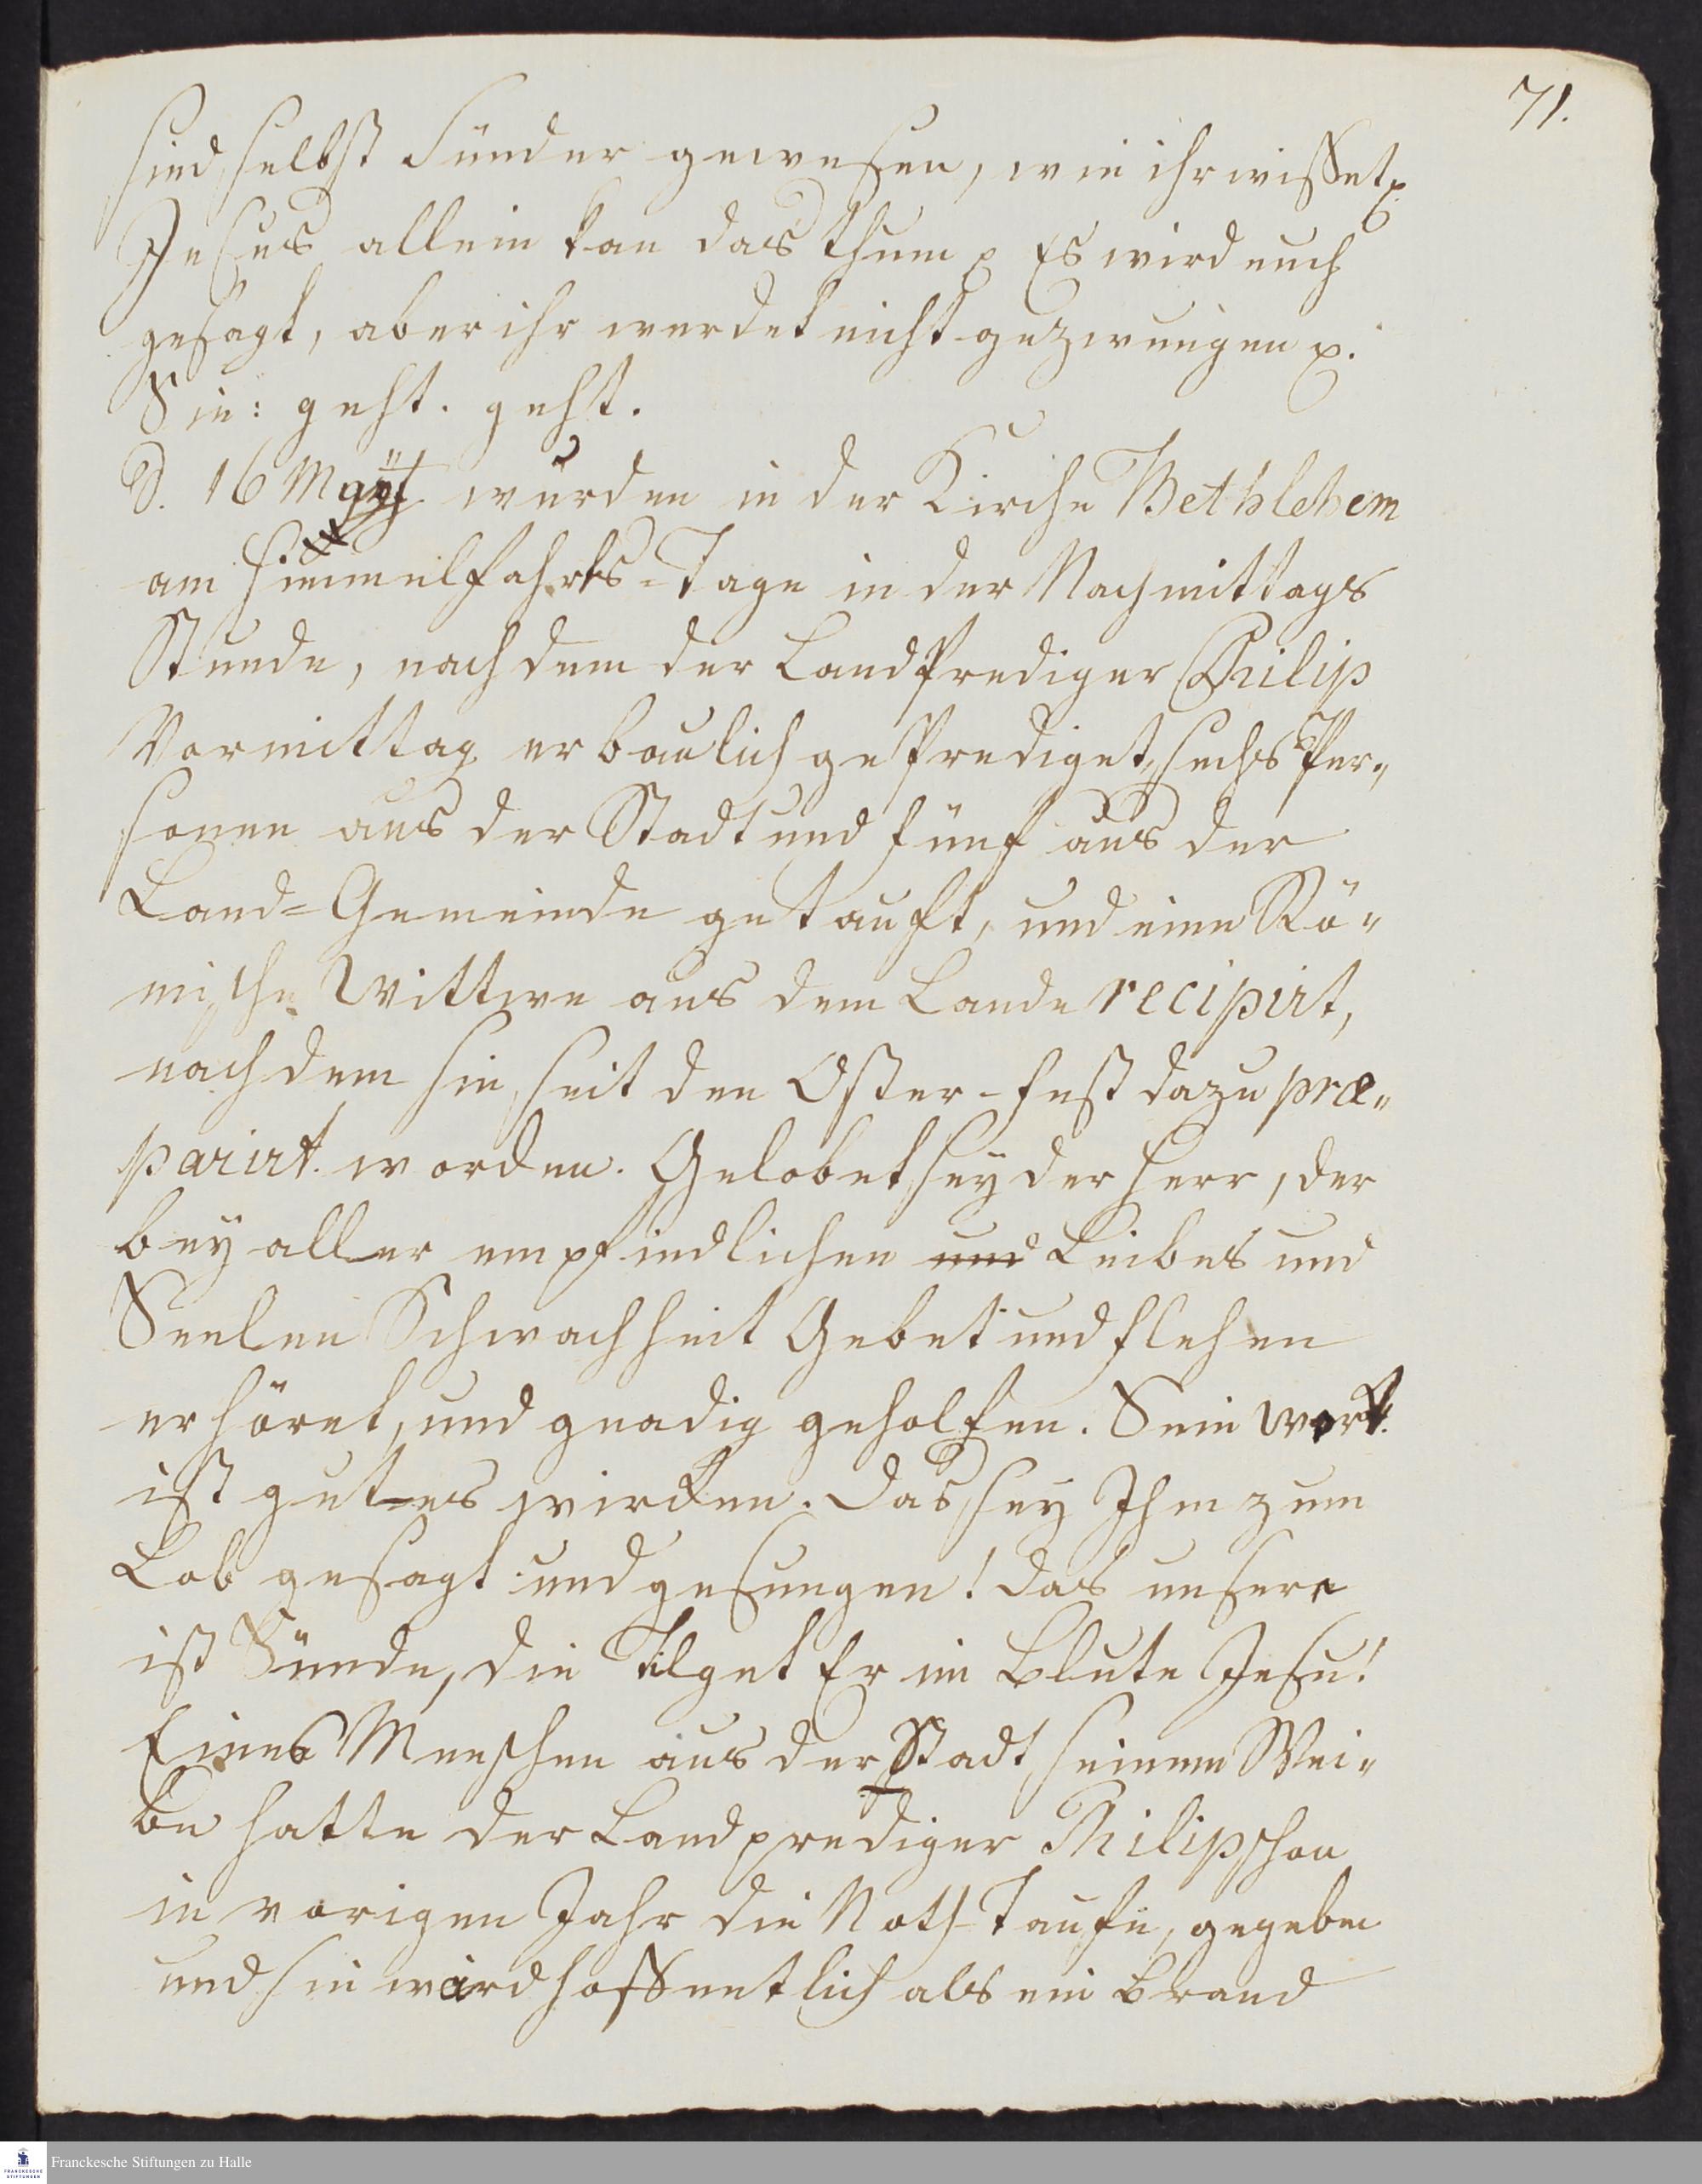 71.
sind selbst Sünder gewesen, wie ihr wisset p.
Jesus allein kan das thun p Es wird euch
gesagt, aber ihr werdet nicht gezwungen p.
Sie: geht. geht.
D. 16 May wurden in der Kirche Bethlehem
am Himmelfahrts-Tage in der Nachmittags
Stunde, nachdem der LandPrediger Philip
Vormittag erbaulich geprediget, sechs Per„
sonen aus der Stadt und fünf aus der
Land-Gemeinde getauft, und eine Rö„
mische Wittwe aus dem Lande recipirt,
nachdem sie seit den Oster-Fest dazu præ„
parirt worden. Gelobet sey der Herr, der
bey aller empfindlichen und Leibes und
Seelen Schwachheit Gebet und Flehen
erhöret, und gnadig geholfen. Sein Werk
ist gutes wircken. Das sey Ihm zum
Lob gesagt und gesungen! Das unsere
ist Sünde, die tilget Er im Blute Jesu!
Eines Menschen aus der Stadt seinem Wei„
be hatte der Landprediger Philip schon
in vorigen Jahr die Noth-Taufe, gegeben
und sie wird hoffentlich als ein Brand
Franckesche Stiftungen zu Halle